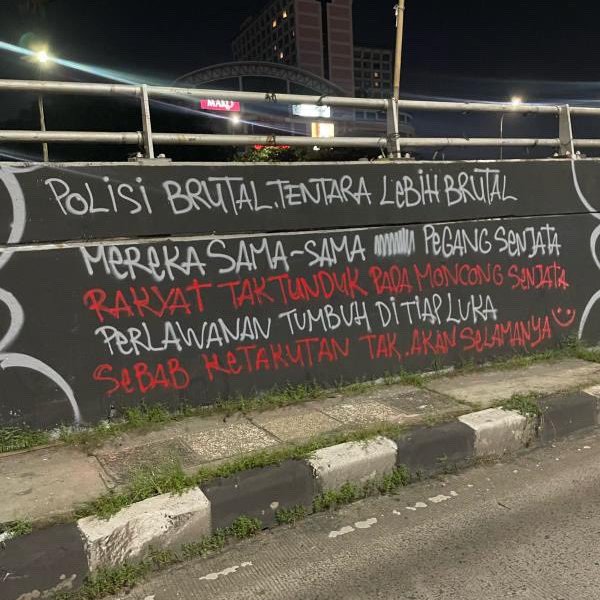 POLISI BRUTAL. TENTARA LEBIH BRUTAL
MEREKA SAMA-SAMA PEGANG SENJATA
RAKYAT TAK TUNDUK PADA MONCONG SENJATA
PERLAWANAN TUMBUH DI TIAP LUKA
SEBAB KETAKUTAN TAK. AKAN SELAMANYA